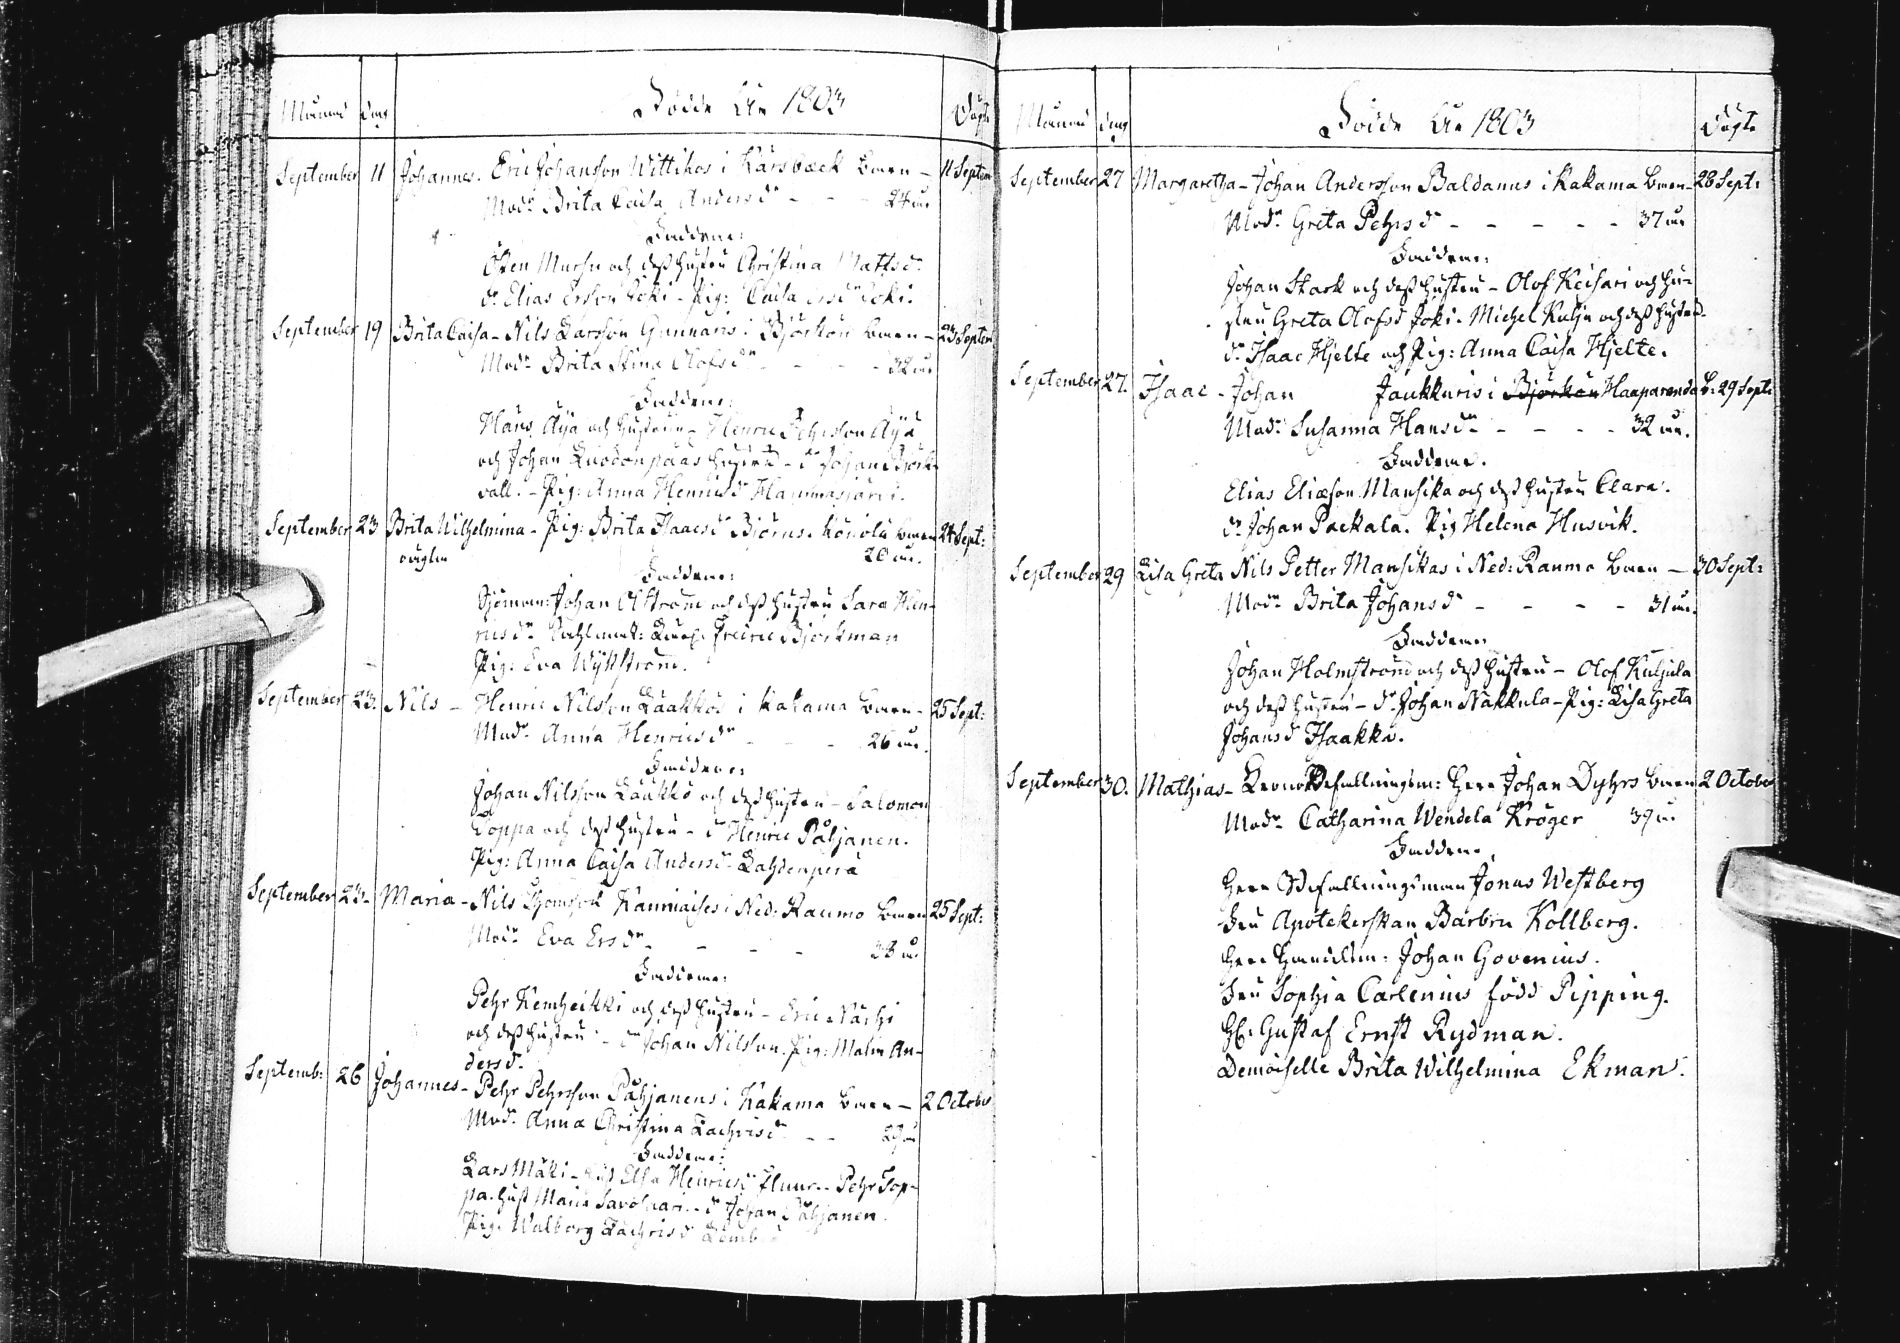 Månad dag Födde År 1803 Döpte
September 11 Johannes. Eric Johansson Wittikos i Karsbäck barn - 11 Septem
Modr Brita Caisa Andersdr - - - 24 år
Faddrar:
Östen Mursu och dess hustru Christina Mattsdr
dr. Elias Ersson Joki - Pig: Caisa Ersdr Joki.
September 19 Brita Caisa - Nils Larsson Gunnaris i Björkön barn - 23 Septem
Modr Brita Stina Olofsdr - - - 32 år
Faddrar:
Hans Äyä och hustrun - Henric Pehrsson Äyä
och Johan hustru - dr Johan Björk-
vall. - Pig: Anna Henricsdr Hammasjärvi.
September 23 Brita Wilhelmina - Pig: Brita Isaacsdr Björns. barn 24 Sept:
oägta 26 år.
Faddrar:
Sjöman: Johan Alström och dess hustru Sara Hen-
ricsdr Björkman
Pig: Eva Wykström.
September 23. Nils - Henric Nilsson Laakkos i Kakama barn - 25 Sept:
Modr. Anna Henricsdr - - - 26 år.
Faddrar:
Johan Nilsson Laukko och dess hustru - Salomon
Loppa och dess hustru - dr Henric Påhjanen.
Pig: Anna Caisa Andersdr Lahdenperä
September 23. Maria - Nils Thomson i Ned: Raumo barn 25 Sept:
Modr Eva Ersdr - - - 28 år
Faddrar:
Pehr Kemheikki och dess hustru - Eric Nacki
och dess hustru - dr Johan Nilsson. Pig: Malin An-
dersdr.
Septemb: 26 Johannes - Pehr Pehrsson Påhjanens i Kakama barn - 2 October
Modr. Anna Christina Zachrisdr - - 29 år
Faddrar:
Lars Mäki - hust Elsa Henricsdr - Pehr Top-
pa. hust Maria - dr Johan Påhjanen.
Pig: Walborg Zachrisdr
Månad dag Födde År 1803 Döpte
September 27 Margaretha - Johan Andersson Baldanus i Kakama barn - 28 Sept:
Modr Greta Pehrsdr - - - - - 37 år
Faddrar:
Johan Stark och dess hustru - Olof Keisari och hu-
stru Greta Olofsdr Joki. Michel Kulju och dess hustru.
dr. Isaac Hjelte och Pig: Anna Caisa Hjelte.
September 27. Isaac - Johan Jaukkuris i Björkön Haaparanda b: 29 Sept:
Modr Susanna Hansdr - - - - 32 år.
Faddrar.
Elias Eliæson Mansikka och dess hustru Clara.
dr Johan Packala. Pig Helena Husvik.
September 29 Lisa Greta Nils Petter Mansikas i Ned: Raumo barn - 30 Sept:
Modr Brita Johansdr - - - - 31 år.
Faddrar
Johan Holmström och dess hustru - Olof Kuljula
och dess hustru - dr Johan Nakkula - Pig: Lisa Greta
Johansdr Isaakka.
September 30. Mathias - Krono Befallningsm: Herr Johan Dyhrs barn 2 October
Modr Catharina Wendela Kröger 39 år
Faddrar.
Herr Befallningsman Jonas Westberg
Fru Apotekerskan Barbru Kollberg.
Herr Handelsm: Johan Govenius.
Fru Sophia Carlenius född Pipping.
Hl: Gustaf Ernst Rydman.
Demoiselle Brita Wilhelmina Ekman.